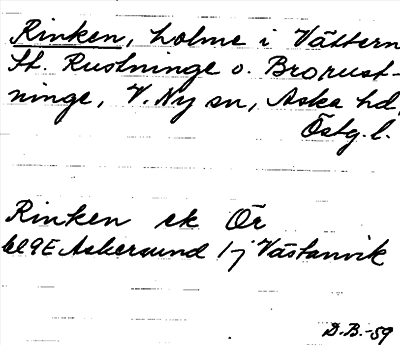 Rinken, holme i Vättern
St. Rustninge o. Brorust-
ninge, V. Ny sn, Aska hd,
Östg. l.
Rinken ek Ör
bl 9E Askersund 1-j Västanvik
D.B.-59